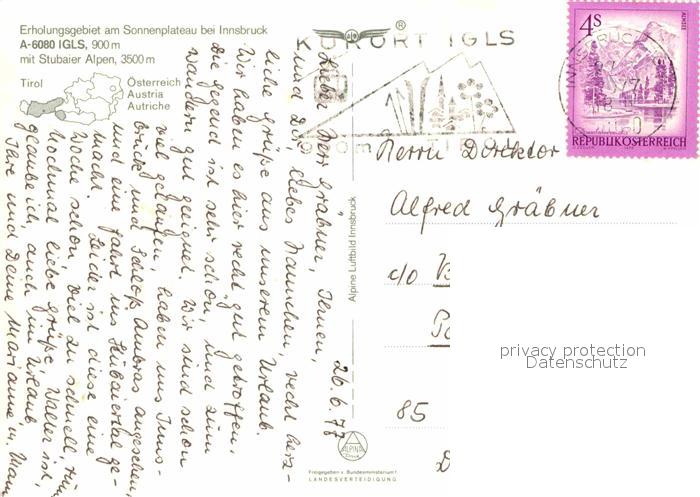 Erholungsgebiet am Sonnenplateau bei Innsbruck
A-6080 IGLS, 900 m
mit Stubaier Alpen, 3500 m
Tirol
Österreich
Austria
Autriche
KURORT IGLS
TIROL
4 S
REPUBLIK ÖSTERREICH
26.6.77
Lieber Herr Gräbner, Ihnen,
und Dir, liebes Hannchen, recht herz-
liche Grüße aus unserem Urlaub.
Wir haben es hier recht gut getroffen,
die Gegend ist sehr schön, und zum
Wandern gut geeignet. Wir sind schon
viel gelaufen, haben uns Inns-
bruck und Schloß Ambras angesehen,
und eine Fahrt ins Stubaital ge-
macht. Leider ist diese eine
Woche schon viel zu schnell um.
Nochmal liebe Grüße, Walter ist,
glaube ich, auch im Urlaub
Ihre und Deine Marianne u.
Alpine Luftbild Innsbruck
ALPINA
Freigegeben v. Bundesministerium f.
LANDESVERTEIDIGUNG
Herrn Direktor
Alfred Gräbner
c/o
85
privacy protection
Datenschutz